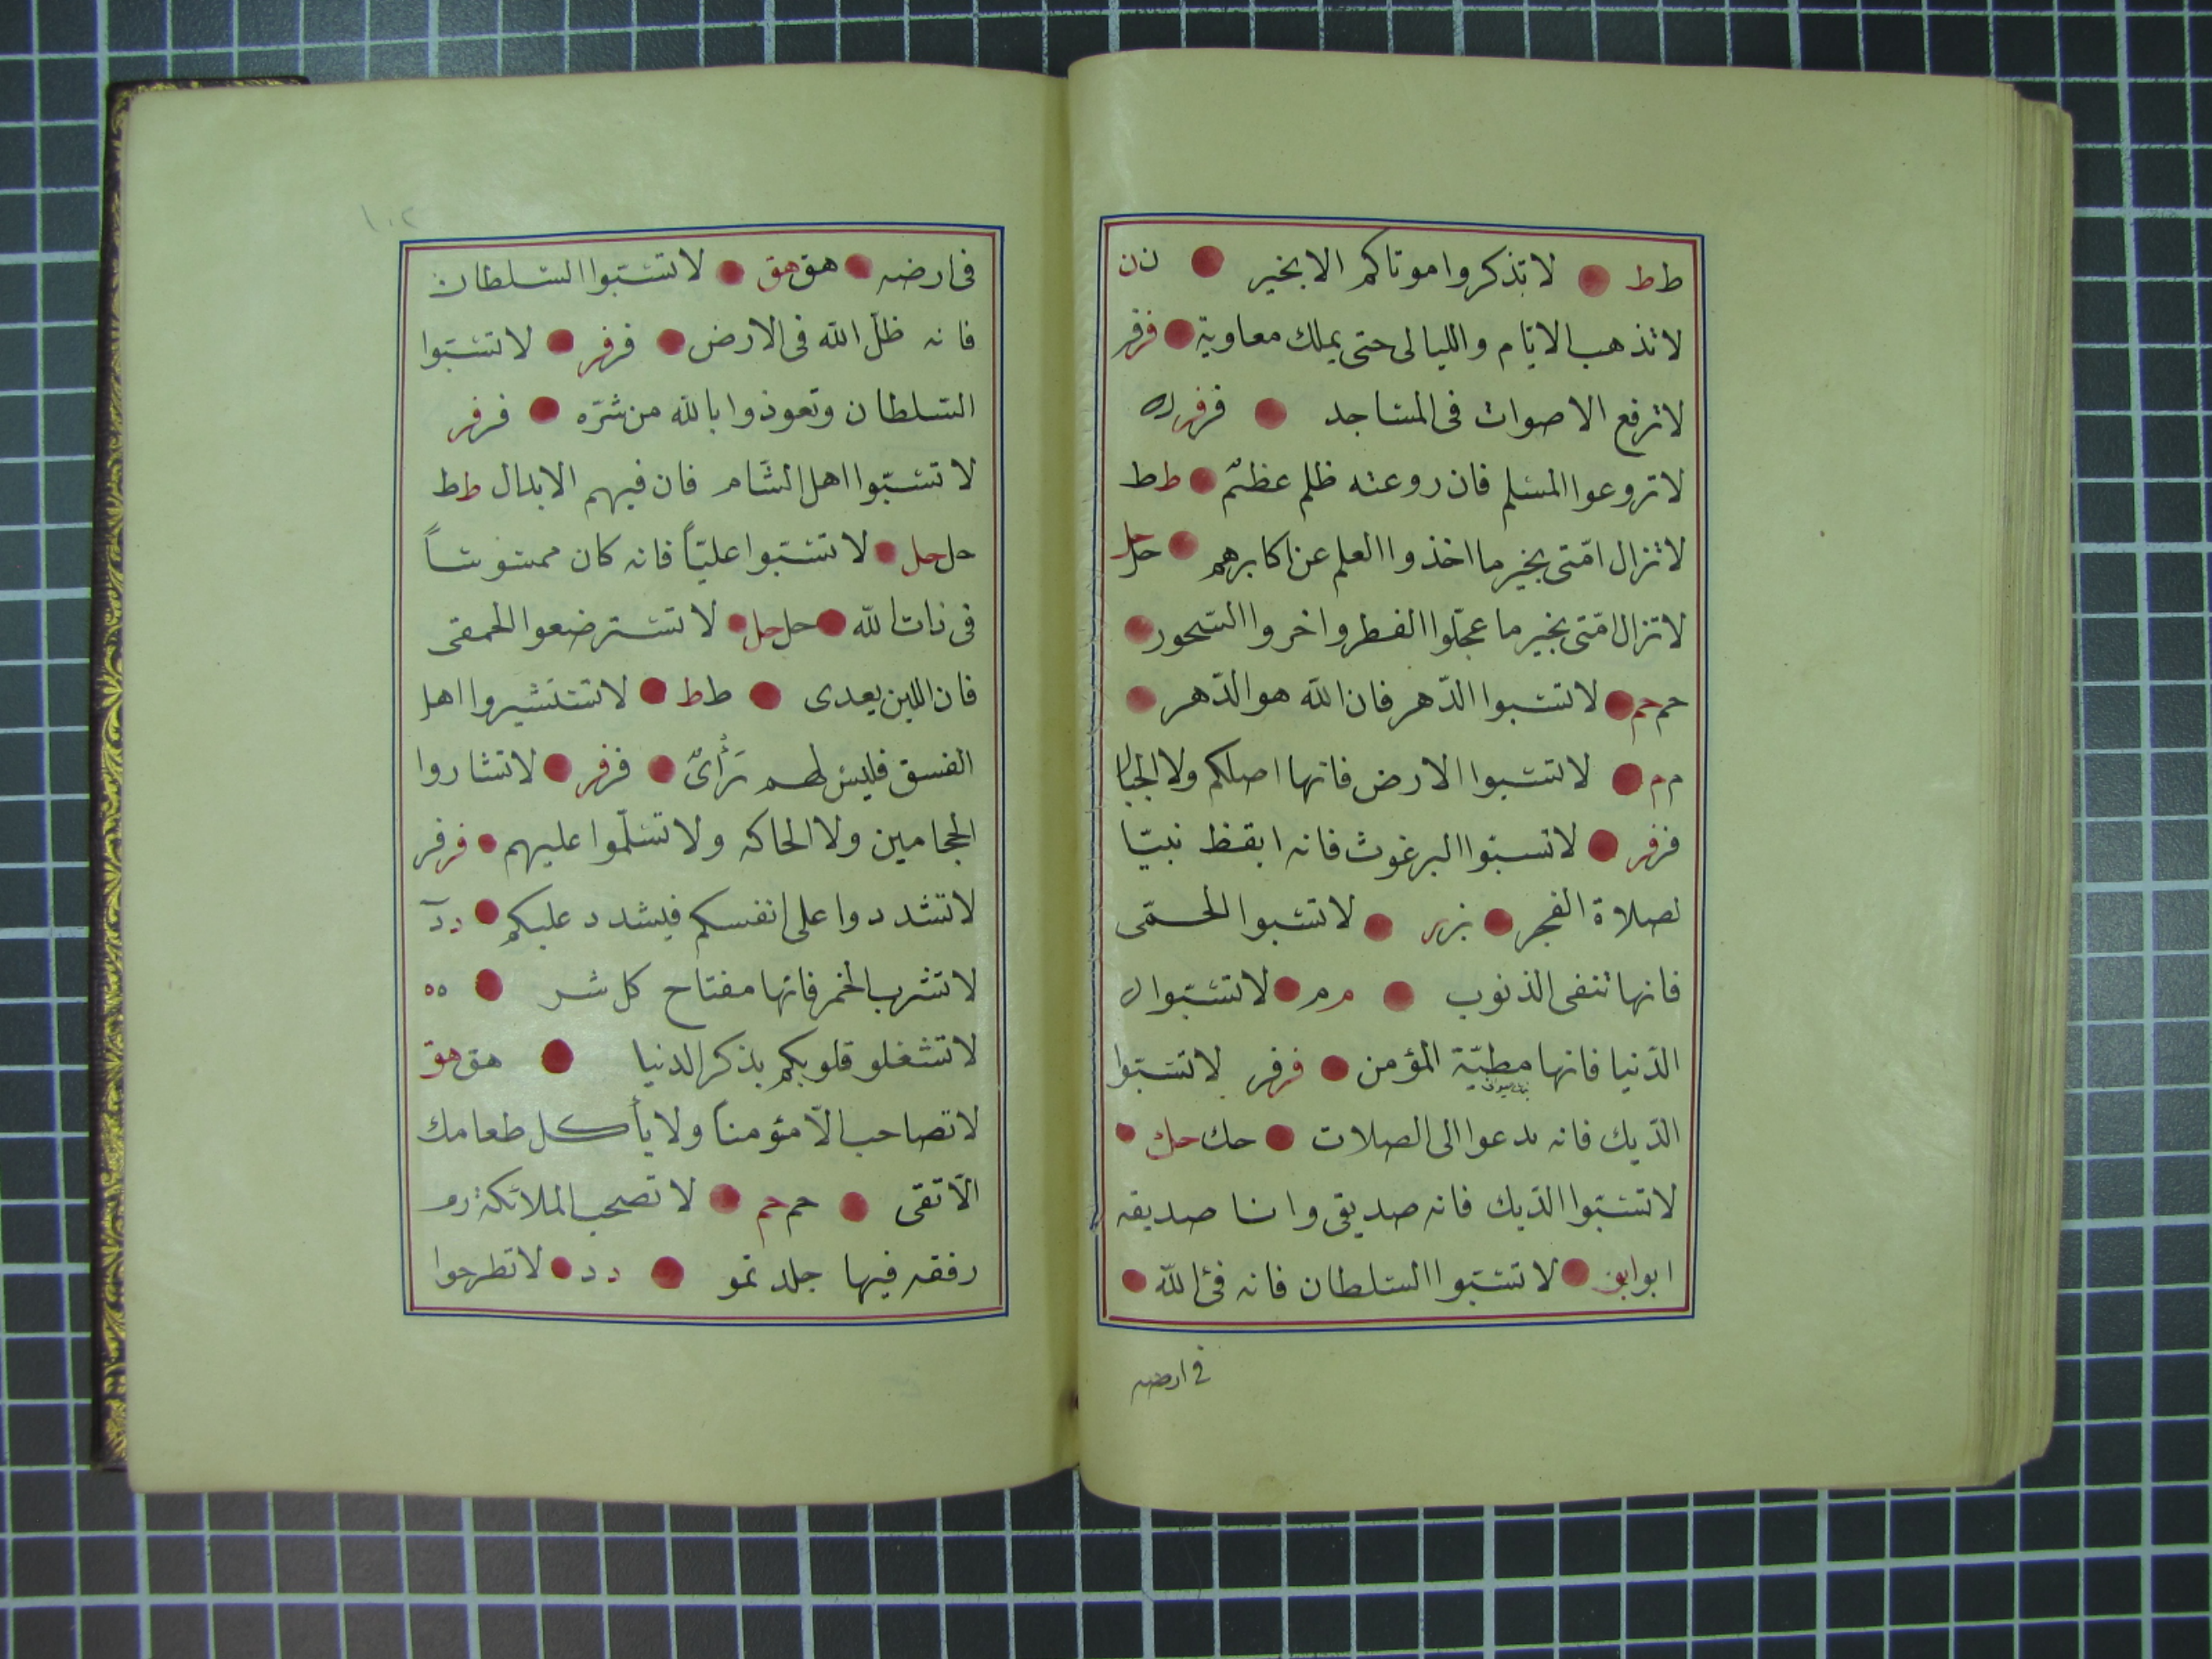 طط لا تذكروا موتاكم الا بخير ن ن
لا تذهب الايام والليالى حتى يملك معاوية فرفر
لا ترفع الاصوات فى المساجد فرفر ه
لا تروعوا المسلم فان روعته ظلم عظيم طط
لا تزال امتى بخير ما اخذوا العلم عن اكابرهم حل
لا تزال امتى بخير ما عجّلوا الفطر واخروا السّحور
حم حم لا تسبوا الدّهر فان الله هو الدّهر
م م لا تسبوا الارض فانها اصلكم ولا الجبال
فرفر لا تسبّوا البرغوث فانه ايقظ نبيّا
لصلاة الفجر بزبز لا تسبوا الحمّى
فانها تنفى الذنوب م م لا تسبّوا
الدّنيا فانها مطيّة المؤمن فرفر لا تسبّوا
الدّيك فانه يدعوا الى الصلات حك حك
لا تسبّوا الدّيك فانه صديقى وانا صديقه
ابو ابو لا تسبّوا السّلطان فانه فئ الله
فى ارضه
١٠٢
فى ارضه هق هق لا تسبّوا السّلطان
فانه ظلّ الله فى الارض فرفر لا تسبّوا
السّلطان وتعوذوا بالله من شرّه فرفر
لا تسبّوا اهل الشّام فان فيهم الابدال طط
حل حل لا تسبّوا عليّاً فانه كان ممسوساً
فى ذات الله حل حل لا تسترضعوا الحمقى
فان اللبن يعدى طط لا تستشيروا اهل
الفسق فليس لهم رأى فرفر لا تشاروا
الحجامين ولا الحاكه ولا تسلّموا عليهم فرفر
لا تشددوا على انفسكم فيشدد عليكم دد
لا تشرب الخمر فانها مفتاح كل شر ه ه
لا تشغلو قلوبكم بذكر الدنيا هق هق
لا تصاحب الّا مؤمناً ولا يأكل طعامك
الّا تقى حم حم لا تصحب الملائكة
رفقه فيها جلد نمو دد لا تطرحوا